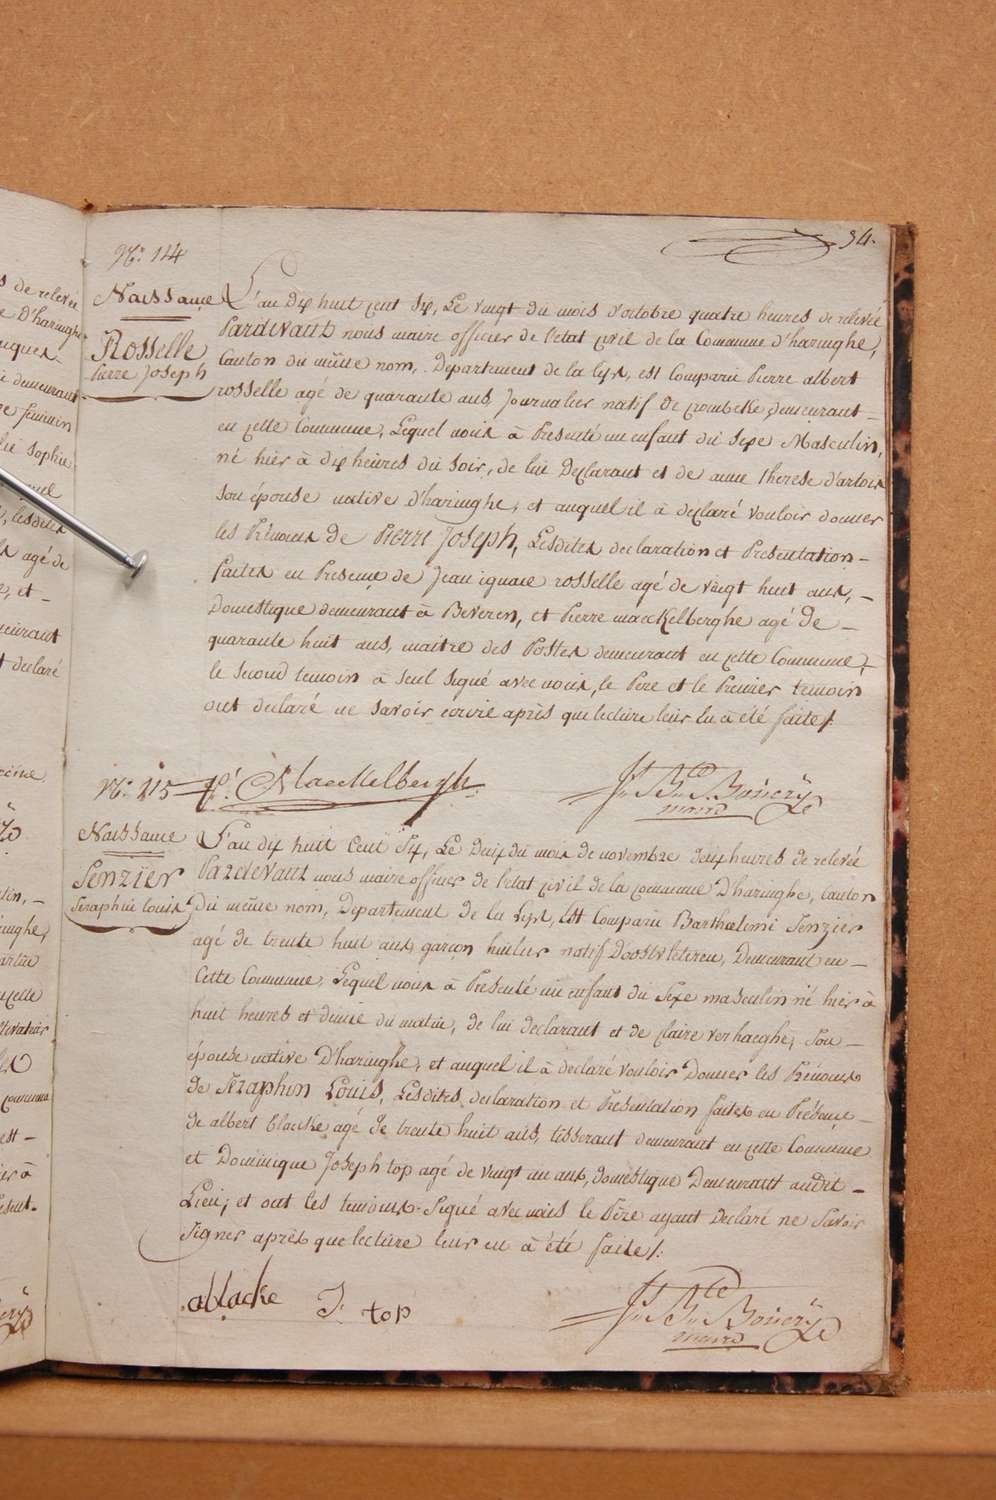 34.
N°. 114
Naissance
Rosselle
Pierre Joseph
L'an Dix huit cent six, Le vingt du mois d'octobre quatre heures de relevée
Pardevant nous maire officier de l'etat civil de la Commune d'haringhe,
Canton du même nom, Departement de la Lys, est Comparu Pierre albert
rosselle agé de quarante ans, Journalier natif de crombeke, demeurant
en cette Commune, Lequel nous à Presenté un enfant du sexe Masculin,
né hier à dix heures du soir, de lui Declarant et de anne therese d'artois
son épouse native d'haringhe, et auquel il à declaré vouloir donner
les Prénoms de Pierre Joseph, Lesdites declaration et Presentation
faites en Presence de Jean ignace rosselle agé de vingt huit ans,
Domestique demeurant à Beveren, et Pierre maeckelberghe agé de
quarante huit ans, maitre des Postes demeurant en cette Commune,
le second temoin à seul signé avec nous, le Pere et le Premier temoin
ont declaré ne savoir ecrire après que lecture leur en à été faite/.
Maeckelbergh
J.n B.te Bouery
maire
N°. 115
Naissance
Senzier
Seraphin Louis
L'an dix huit Cent Six, Le Deux du mois de novembre deux heures de relevée
Pardevant nous maire officier de l'etat civil de la commune D'haringhe, canton
Du même nom, Departement de la Lys, Est Comparu Barthelemi Senzier
agé de trente huit ans, garçon huilier natif D'oostvleteren, Demeurant en
Cette Commune, Lequel nous à Présenté un enfant du Sexe masculin né hier à
huit heures et demie du matin, de lui declarant et de claire verhaeghe, Son
épouse native D'haringhe, et auquel il à declaré vouloir Donner les Prénoms
de Séraphin Louis, Lesdites declaration et Présentation faites en Présence
de albert blacke agé de trente huit ans, tisserant demeurant en cette Commune
et Dominique Joseph top agé de vingt un ans, domestique Demeurant audit
Lieu; et ont les temoins Signé avec nous le Père ayant Declaré ne Savoir
Signer après que lecture leur en à été faite/.
ablacke
J. top
J.n B.te Bouery
maire